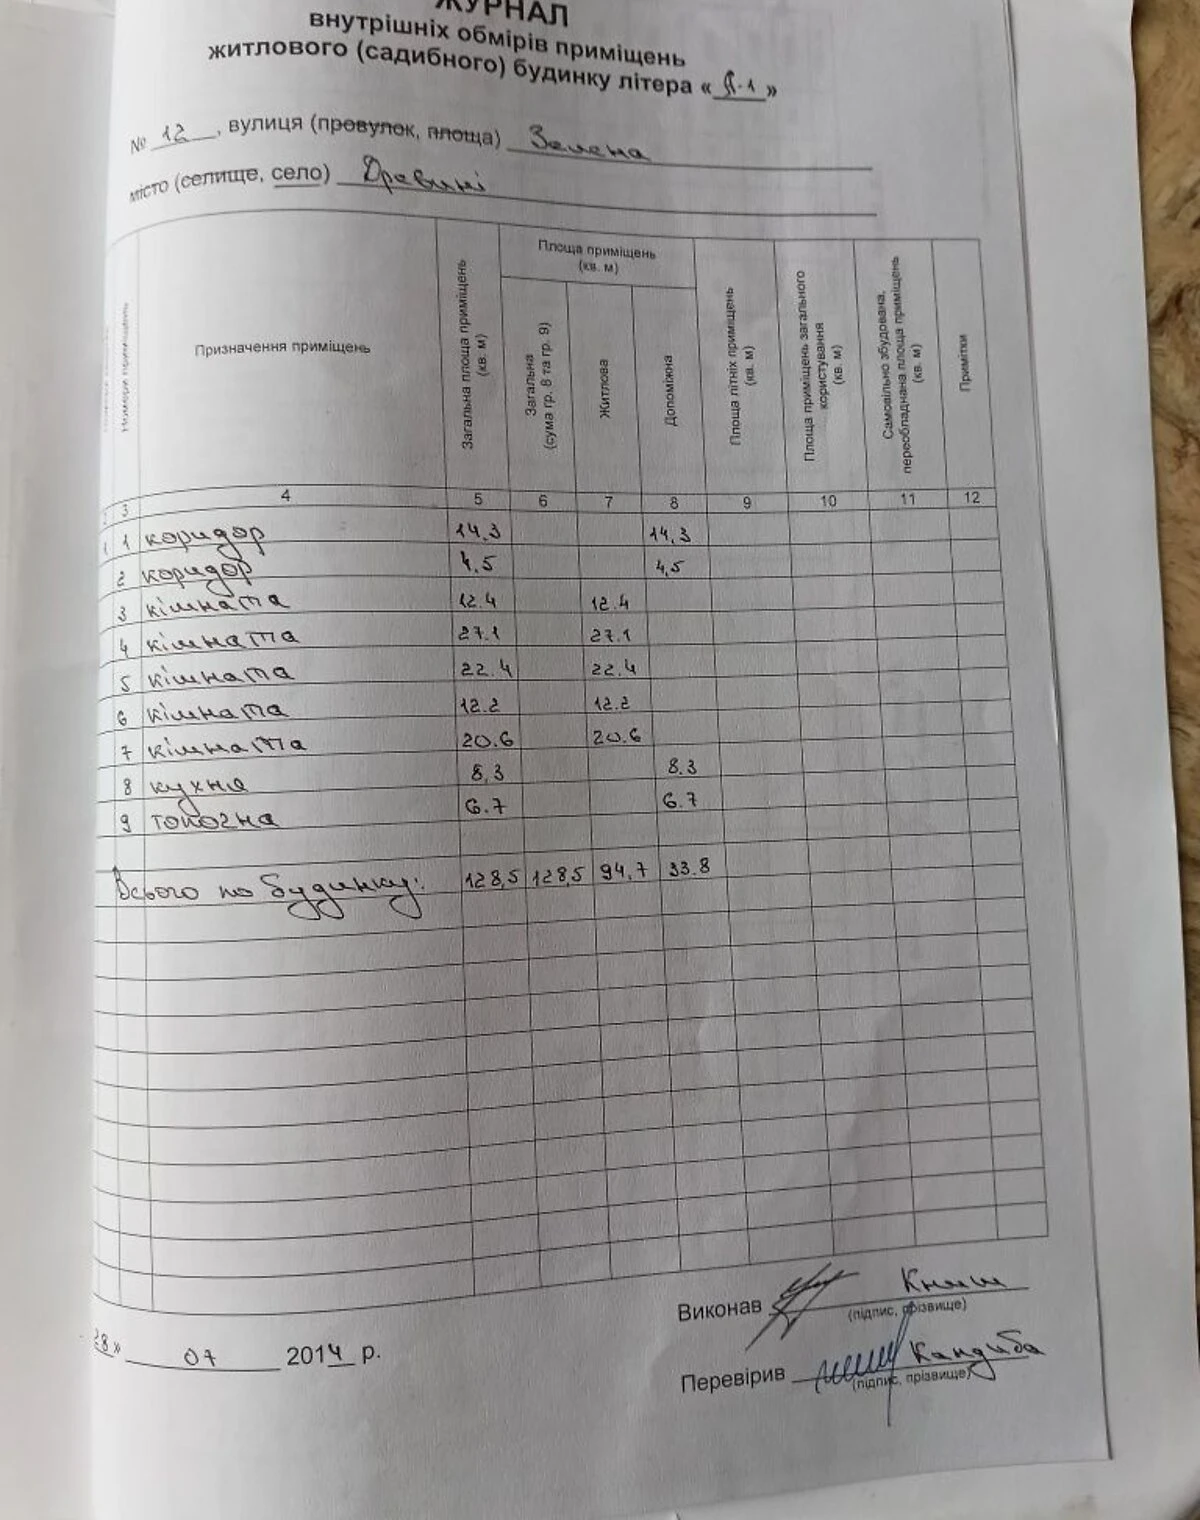 ЖУРНАЛ
внутрішніх обмірів приміщень
житлового (садибного) будинку літера «А-1»
№ 12, вулиця (провулок, площа) Зелена
місто (селище, село)
Номери приміщень
Призначення приміщень
Загальна площа приміщень (кв. м)
Площа приміщень (кв. м)
Загальна (сума гр. 8 та гр. 9)
Житлова
Допоміжна
Площа літніх приміщень (кв. м)
Площа приміщень загального користування (кв. м)
Самовільно збудована, переобладнана площа приміщень (кв. м)
Примітки
3 4 5 6 7 8 9 10 11 12
1 1 коридор 14,3 14,3
2 коридор 4,5 4,5
3 кімната 12.4 12.4
4 кімната 27.1 27.1
5 кімната 22.4 22.4
6 кімната 12.2 12.2
7 кімната 20.6 20.6
8 кухня 8,3 8.3
9 топочна 6.7 6.7
Всього по будинку: 128,5 128,5 94,7 33.8
28» 07 2014 р.
Виконав Книш
(підпис, прізвище)
Перевірив Кандиба
(підпис, прізвище)